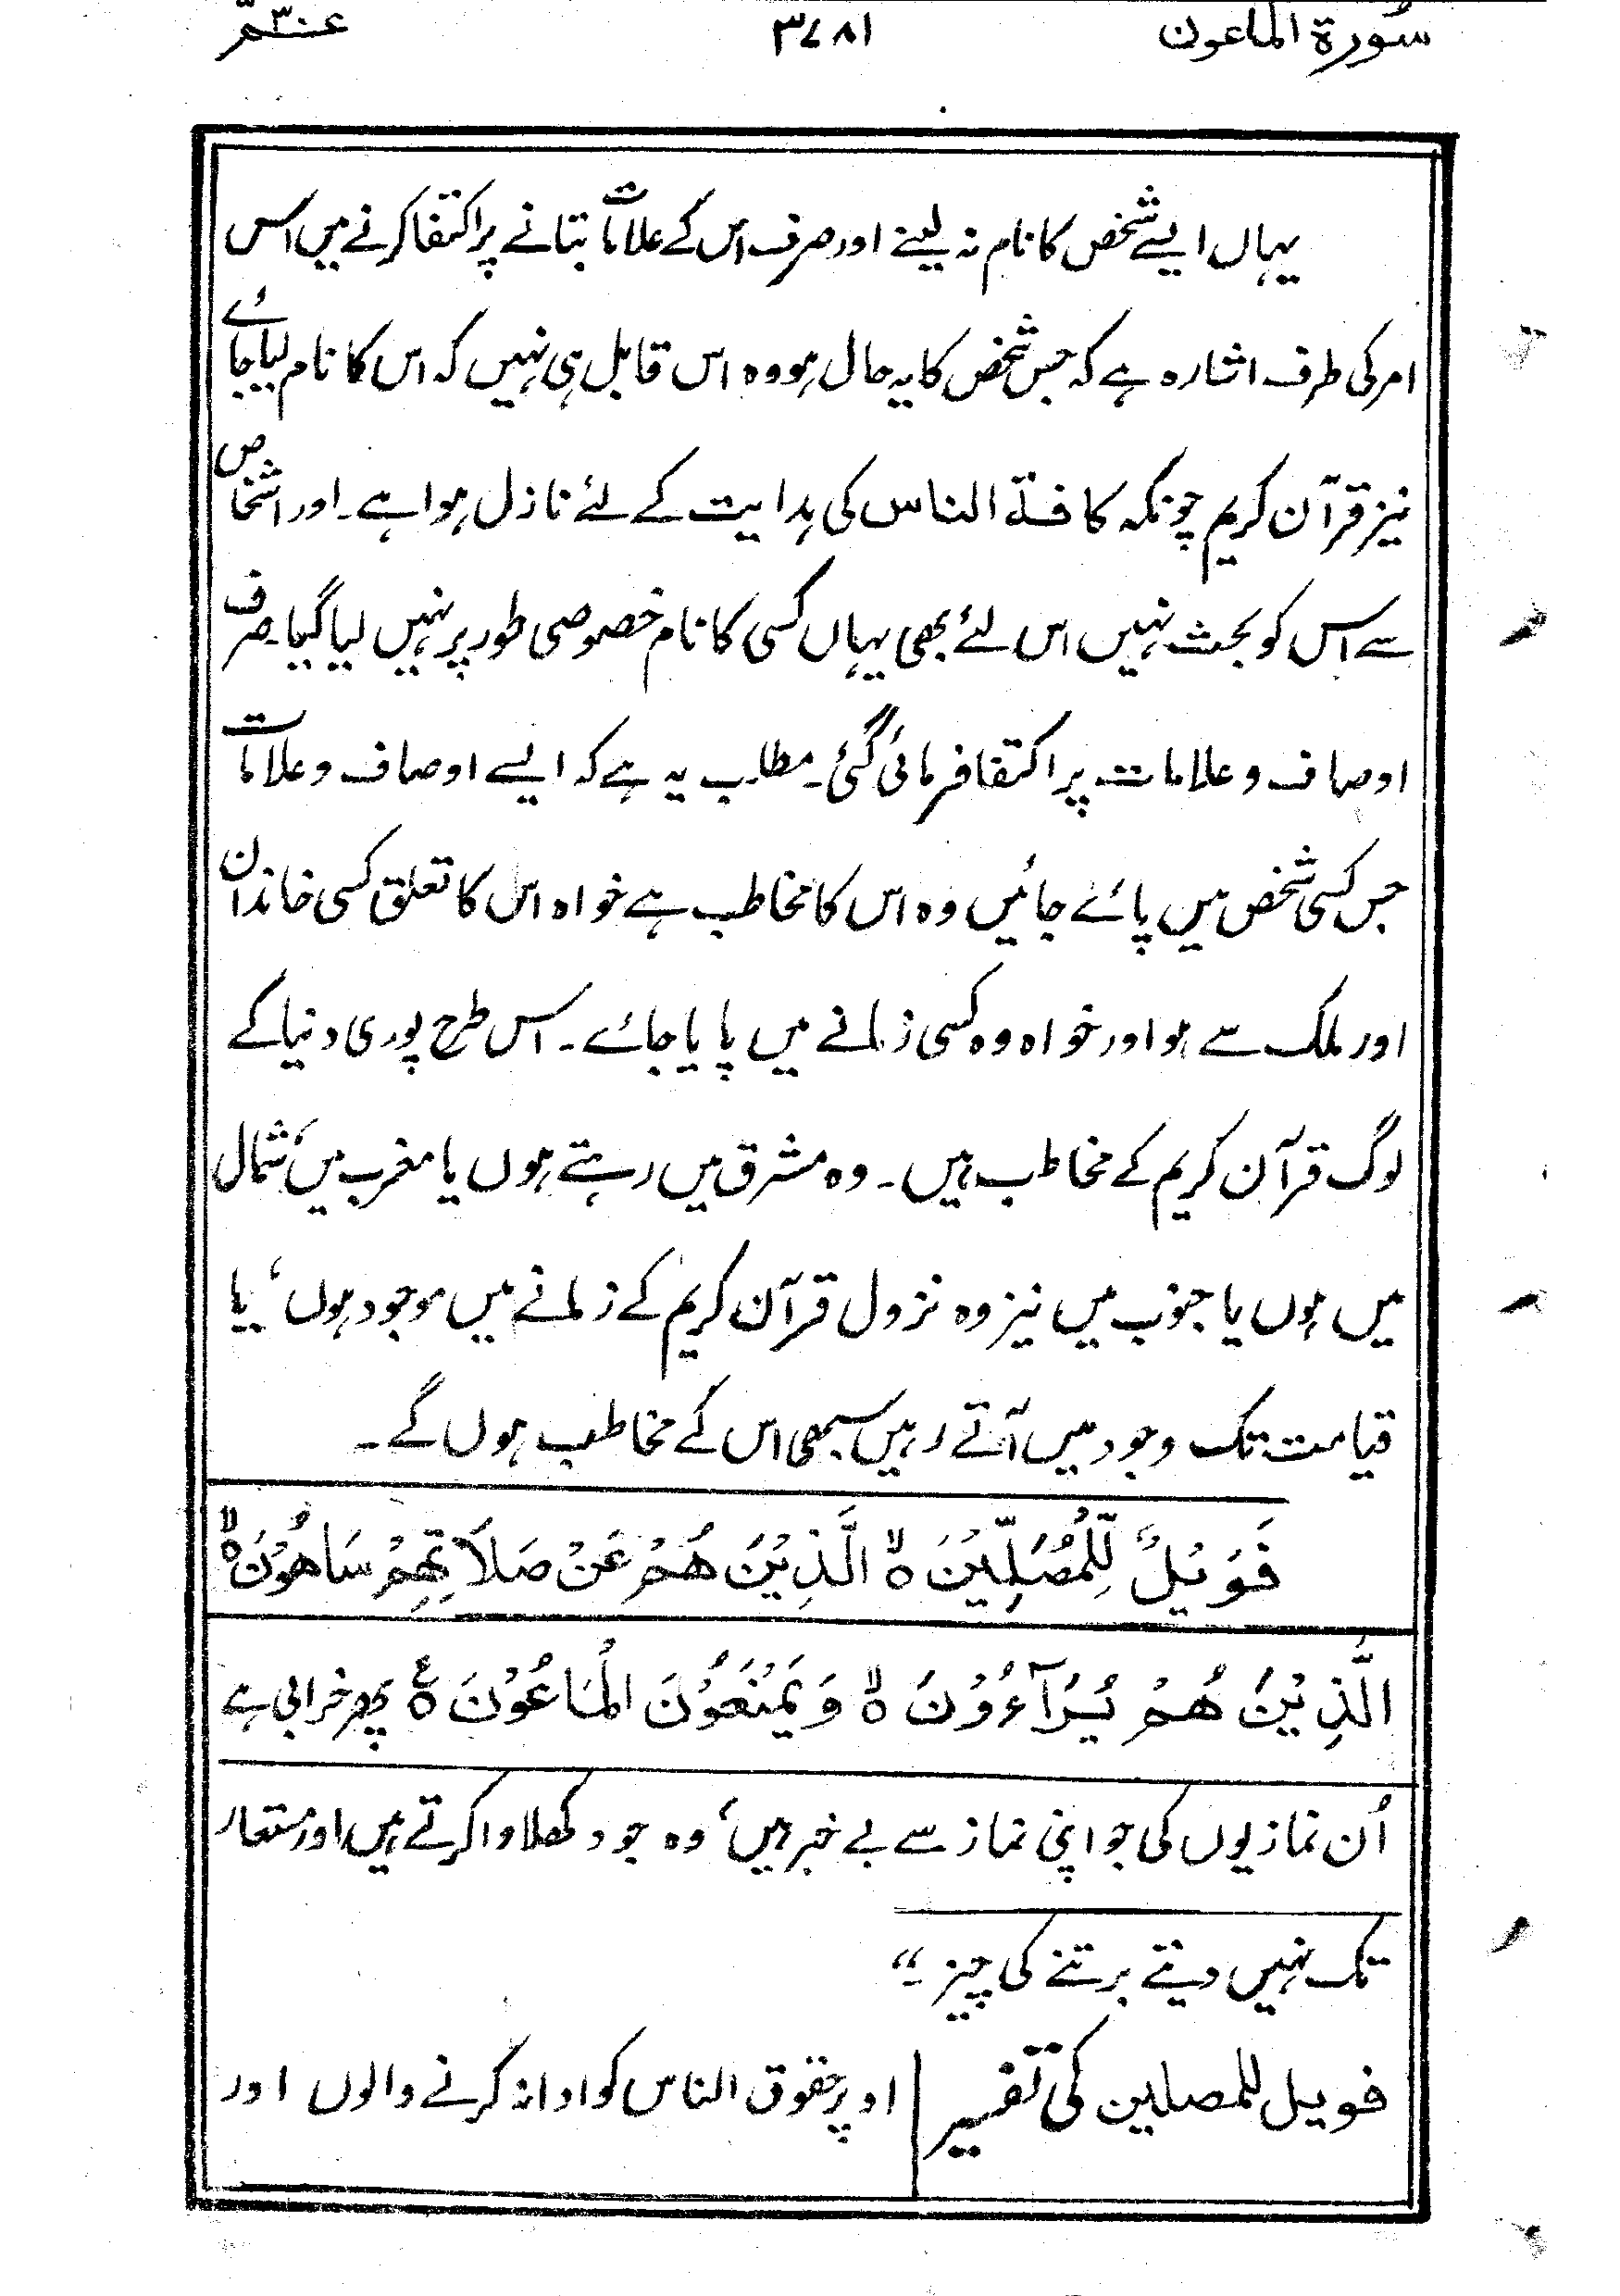 سُورۃ الماعون ۳۷۸۱ عــمّ۳۰
یہاں ایسے شخص کا نام نہ لینے اور صرف اُس کے علامات بتانے پر اکتفا کرنے میں اس
امر کی طرف اشارہ ہے کہ جس شخص کا یہ حال ہو وہ اس قابل ہی نہیں کہ اس کا نام لیا جائے
نیز قرآن کریم چونکہ کافۃ الناس کی ہدایت کے لئے نازل ہوا ہے۔ اور اشخاص
سے اس کو بحث نہیں اس لئے بھی یہاں کسی کا نام خصوصی طور پر نہیں لیا گیا۔ صرف
اوصاف و علامات پر اکتفا فرمائی گئی۔ مطلب یہ ہے کہ ایسے اوصاف و علامات
جس کسی شخص میں پائے جائیں وہ اس کا مخاطب ہے خواہ اس کا تعلق کسی خاندان
اور ملک سے ہو اور خواہ وہ کسی زمانے میں پایا جائے۔ اس طرح پوری دنیا کے
لوگ قرآن کریم کے مخاطب ہیں۔ وہ مشرق میں رہتے ہوں یا مغرب میں، شمال
میں ہوں یا جنوب میں نیز وہ نزول قرآن کریم کے زمانے میں موجود ہوں، یا
قیامت تک وجود میں آتے رہیں سبھی اس کے مخاطب ہوں گے۔
فَوَیْلٌ لِّلْمُصَلِّیْنَ ۙ۵ الَّذِیْنَ هُمْ عَنْ صَلَاتِهِمْ سَاهُوْنَ ۙ۵
الَّذِیْنَ هُمْ یُرَآءُوْنَ ۙ۵ وَیَمْنَعُوْنَ الْمَاعُوْنَ ۵ۧ پھر خرابی ہے
اُن نمازیوں کی جو اپنی نماز سے بے خبر ہیں، وہ جو دکھلاوا کرتے ہیں اور مستعار
تک نہیں دیتے برتنے کی چیز۔“
فویل للمصلین کی تفسیر | اوپر حقوق الناس کو ادا نہ کرنے والوں اور